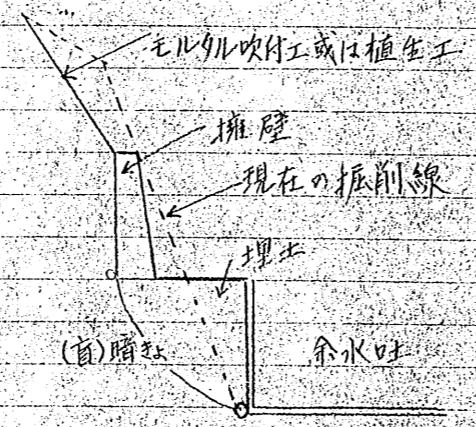 モルタル吹付工或は植生工
擁壁
現在の掘削線
埋土
(盲)暗きょ
余水吐